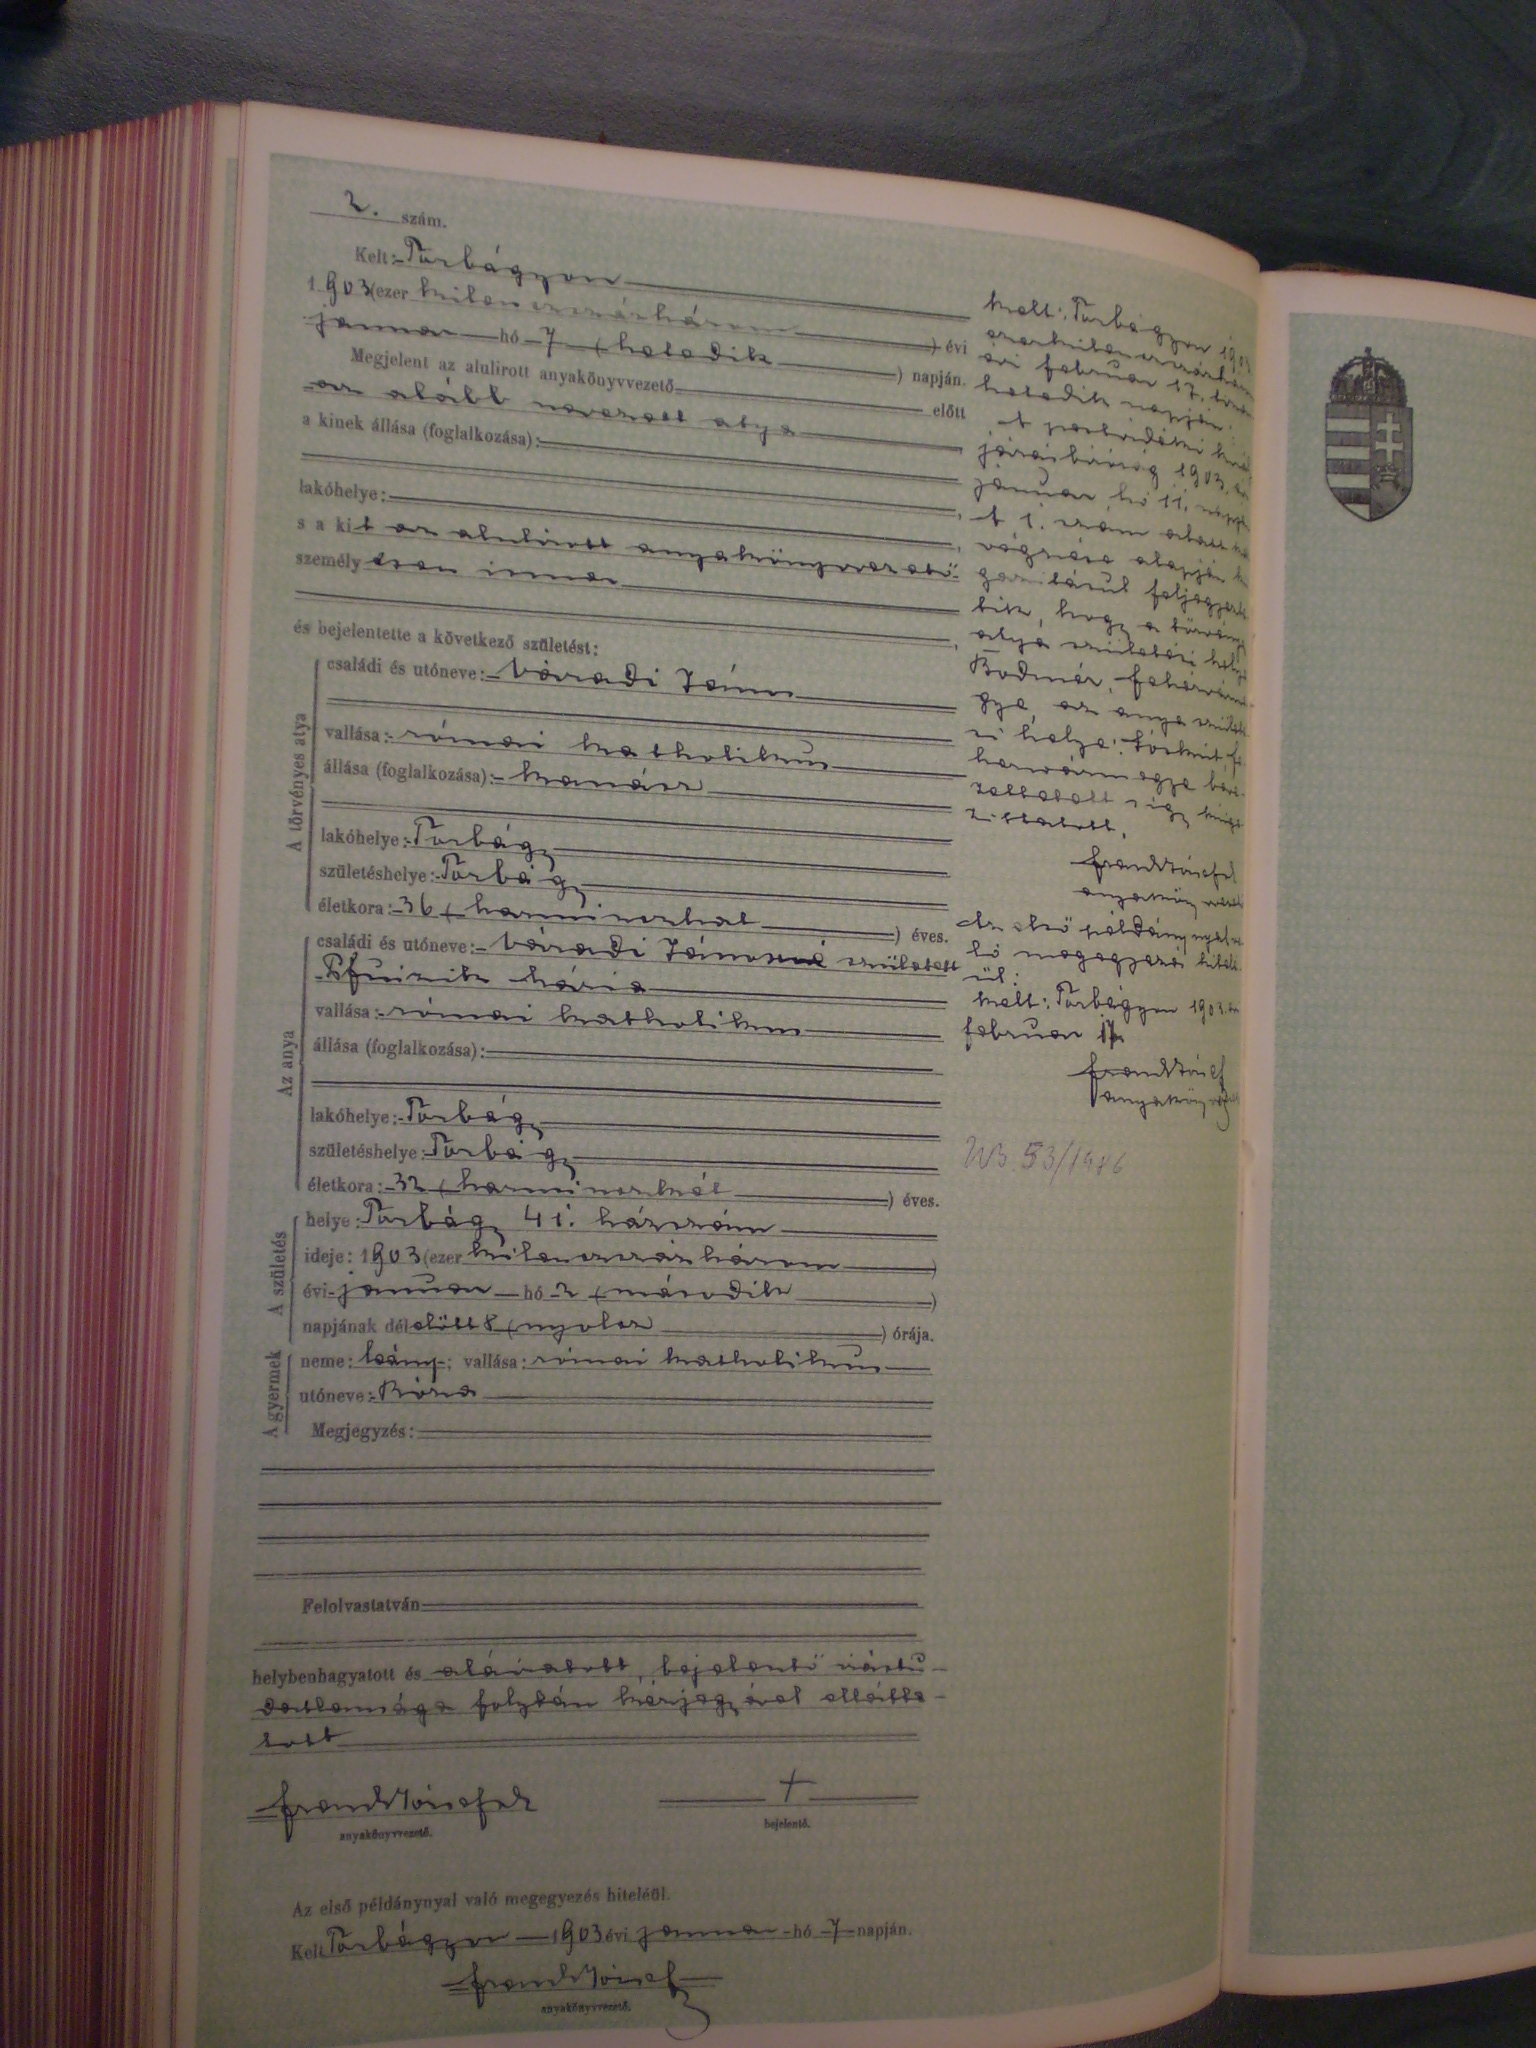 2. szám.
Kelt: Torbágyon
1903 (ezer kilenczszázhárom ) évi
januar hó 7 (hetedik ) napján.
Megjelent az alulirott anyakönyvvezető előtt
az alább nevezett atya
a kinek állása (foglalkozása):
lakóhelye:
s a kit az alulirott anyakönyvvezető
személyesen ismer
és bejelentette a következő születést:
A törvényes atya
családi és utóneve: Váradi János
vallása: római katholikus
állása (foglalkozása): kanász
lakóhelye: Torbágy
születéshelye: Torbágy
életkora: 36 (harminczhat ) éves.
Az anya
családi és utóneve: Váradi Jánosné született
Mária
vallása: római katholikus
állása (foglalkozása):
lakóhelye: Torbágy
születéshelye: Torbágy
életkora: 32 (harminczkét ) éves.
A születés
helye: Torbágy 41. házszám
ideje: 1903 (ezer kilenczszázhárom )
évi januar hó 2 (második )
napjának délelőtt 8 (nyolcz ) órája.
A gyermek
neme: leány; vallása: római katholikus
utóneve:
Megjegyzés:
Felolvastatván
helybenhagyatott és aláiratott, bejelentő irástu-
datlansága folytán kézjegyével ellátta-
tott
Frank József
anyakönyvvezető.
+
bejelentő.
Az első példánynyal való megegyezés hiteléül.
Kelt Torbágyon 1903 évi januar hó 7 napján.
Frank József
anyakönyvvezető.
Kelt: Torbágyon 1903
ezerkilenczszázhárom
évi februar 17. tizen
hetedik napján.
A kir.
járásbiróság 1903. évi
január hó 11. napján
1. szám alatt
végzése alapján
feljegyez-
tik, hogy a törvényes
atya születési helye
Bodmér, Fehérvárme
gye, az anya születé
si helye: Fe
hérvármegye beve
zettetett s igy kiiga
zittatott.
Frank József
anyakönyvvezető
Az első példánynyal va
ló megegyezés hitelé
ül:
Kelt: Torbágyon 1903. évi
februar 17
Frank József